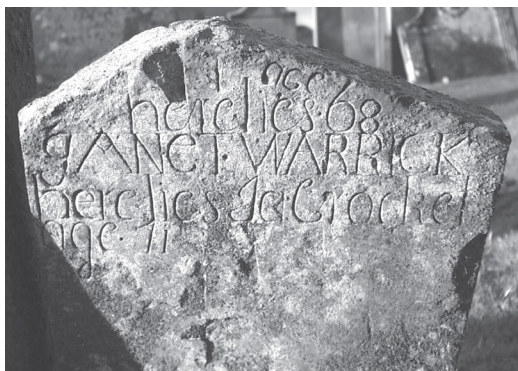 age
herelies·68
gANET·WARRICK
herelies Ja·Crocket
age·11